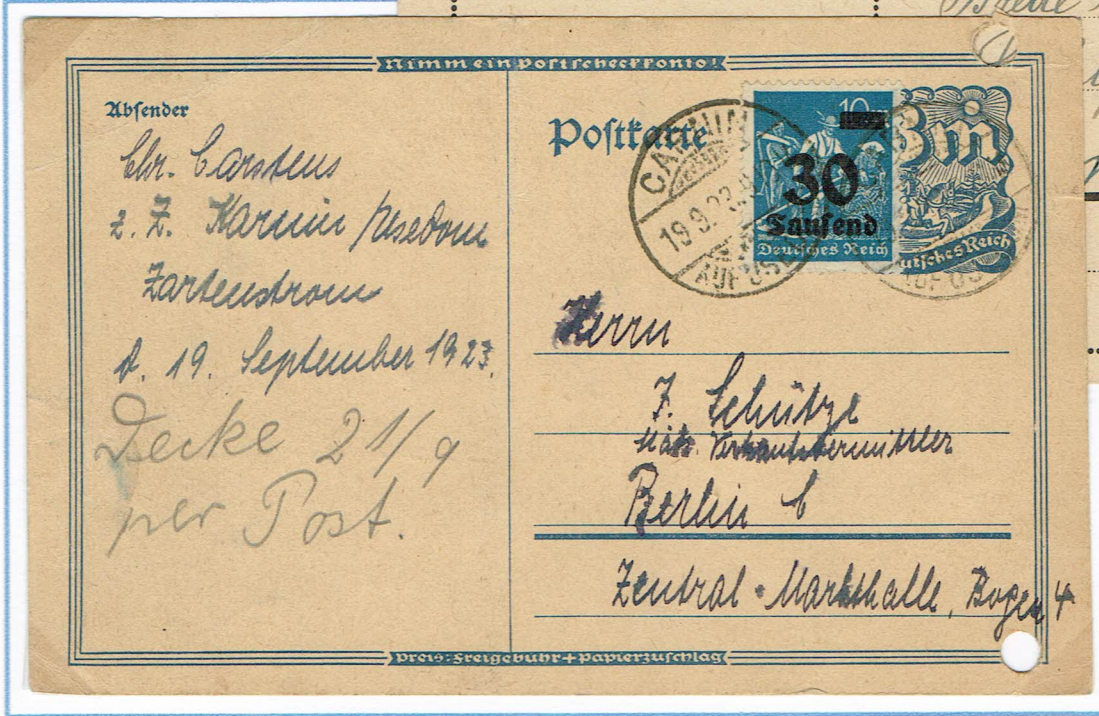 Nimm ein Postscheckkonto!
Absender
Chr. Carstens
z. Z. Karnin /Usedom
d. 19. September 1923.
Decke 21/9
per Post.
Postkarte
10
30
Tausend
Deutsches Reich
3 m
Deutsches Reich
19.9.23.
AUF USE
Herrn
F. Schütze
städt. Verkaufsvermittler
Berlin C
Zentral-Markthalle, Bogen 4
Preis: Freigebühr + Papierzuschlag